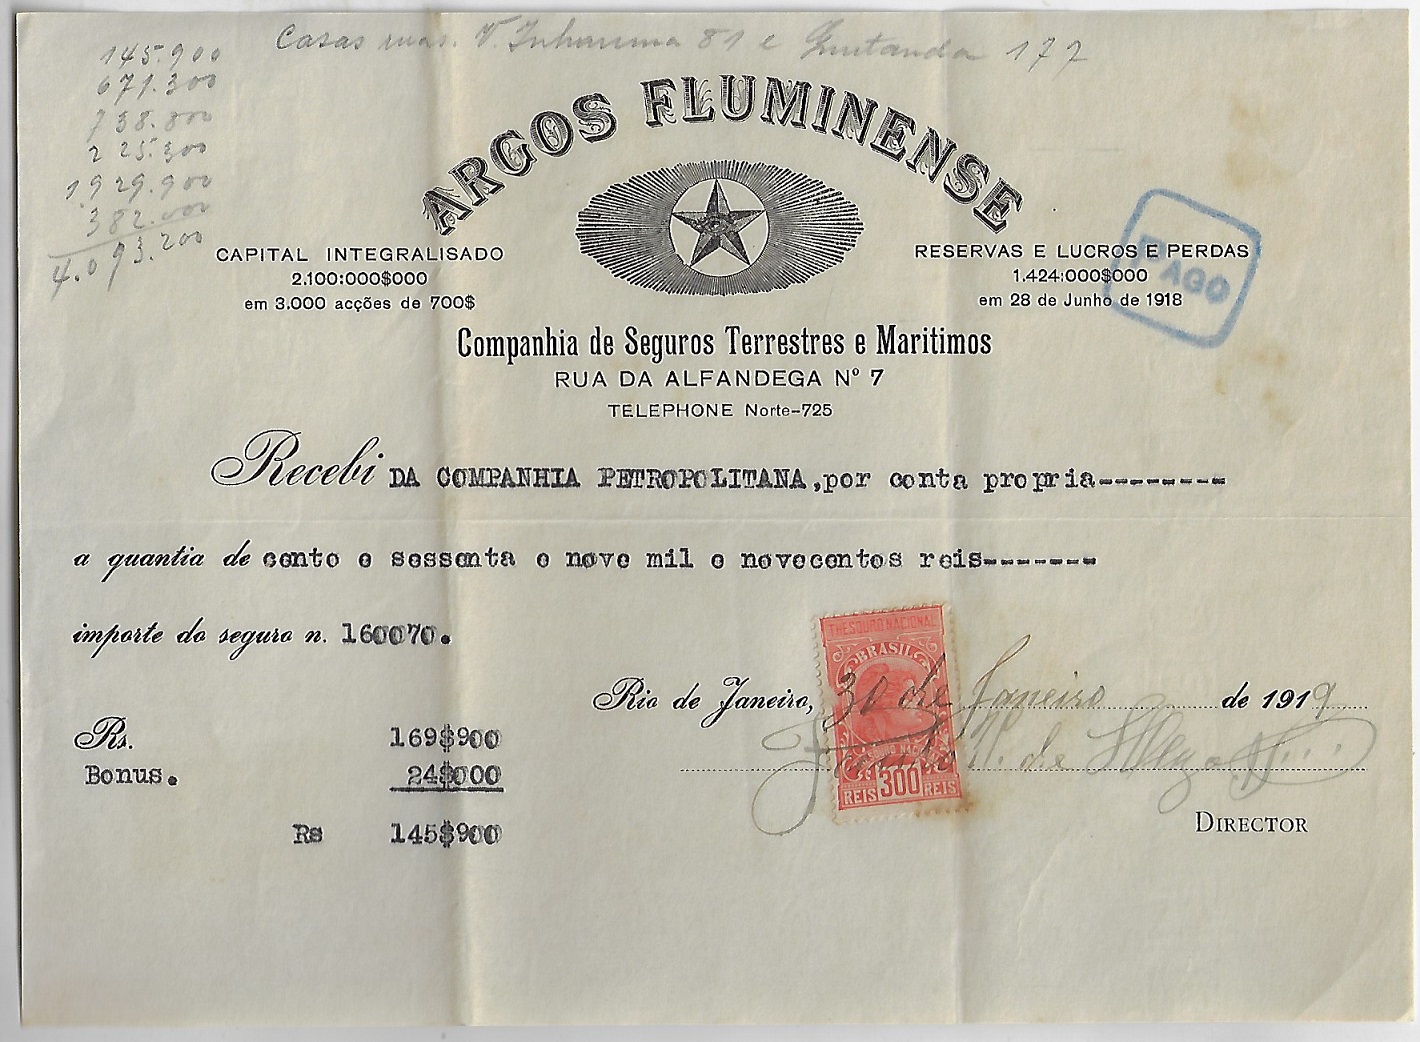 Casas ruas. V. Inhauma 81 e Quitanda 177
145.900
671.300
738.800
225.300
1.929.900
382.000
4.093.200
ARGOS FLUMINENSE
CAPITAL INTEGRALISADO
2.100:000$000
em 3.000 acções de 700$
RESERVAS E LUCROS E PERDAS
1.424:000$000
em 28 de Junho de 1918
PAGO
Companhia de Seguros Terrestres e Maritimos
RUA DA ALFANDEGA Nº 7
TELEPHONE Norte-725
Recebi DA COMPANHIA PETROPOLITANA, por conta propria--------
a quantia de cento e sessenta e nove mil e novecentos reis-------
importe do seguro n. 160070.
THESOURO NACIONAL
BRASIL
Rio de Janeiro, 30 de Janeiro de 1919
Rs. 169$900
Bonus. 24$000
Rs 145$900
THESOURO NACIONAL
REIS 300 REIS
DIRECTOR